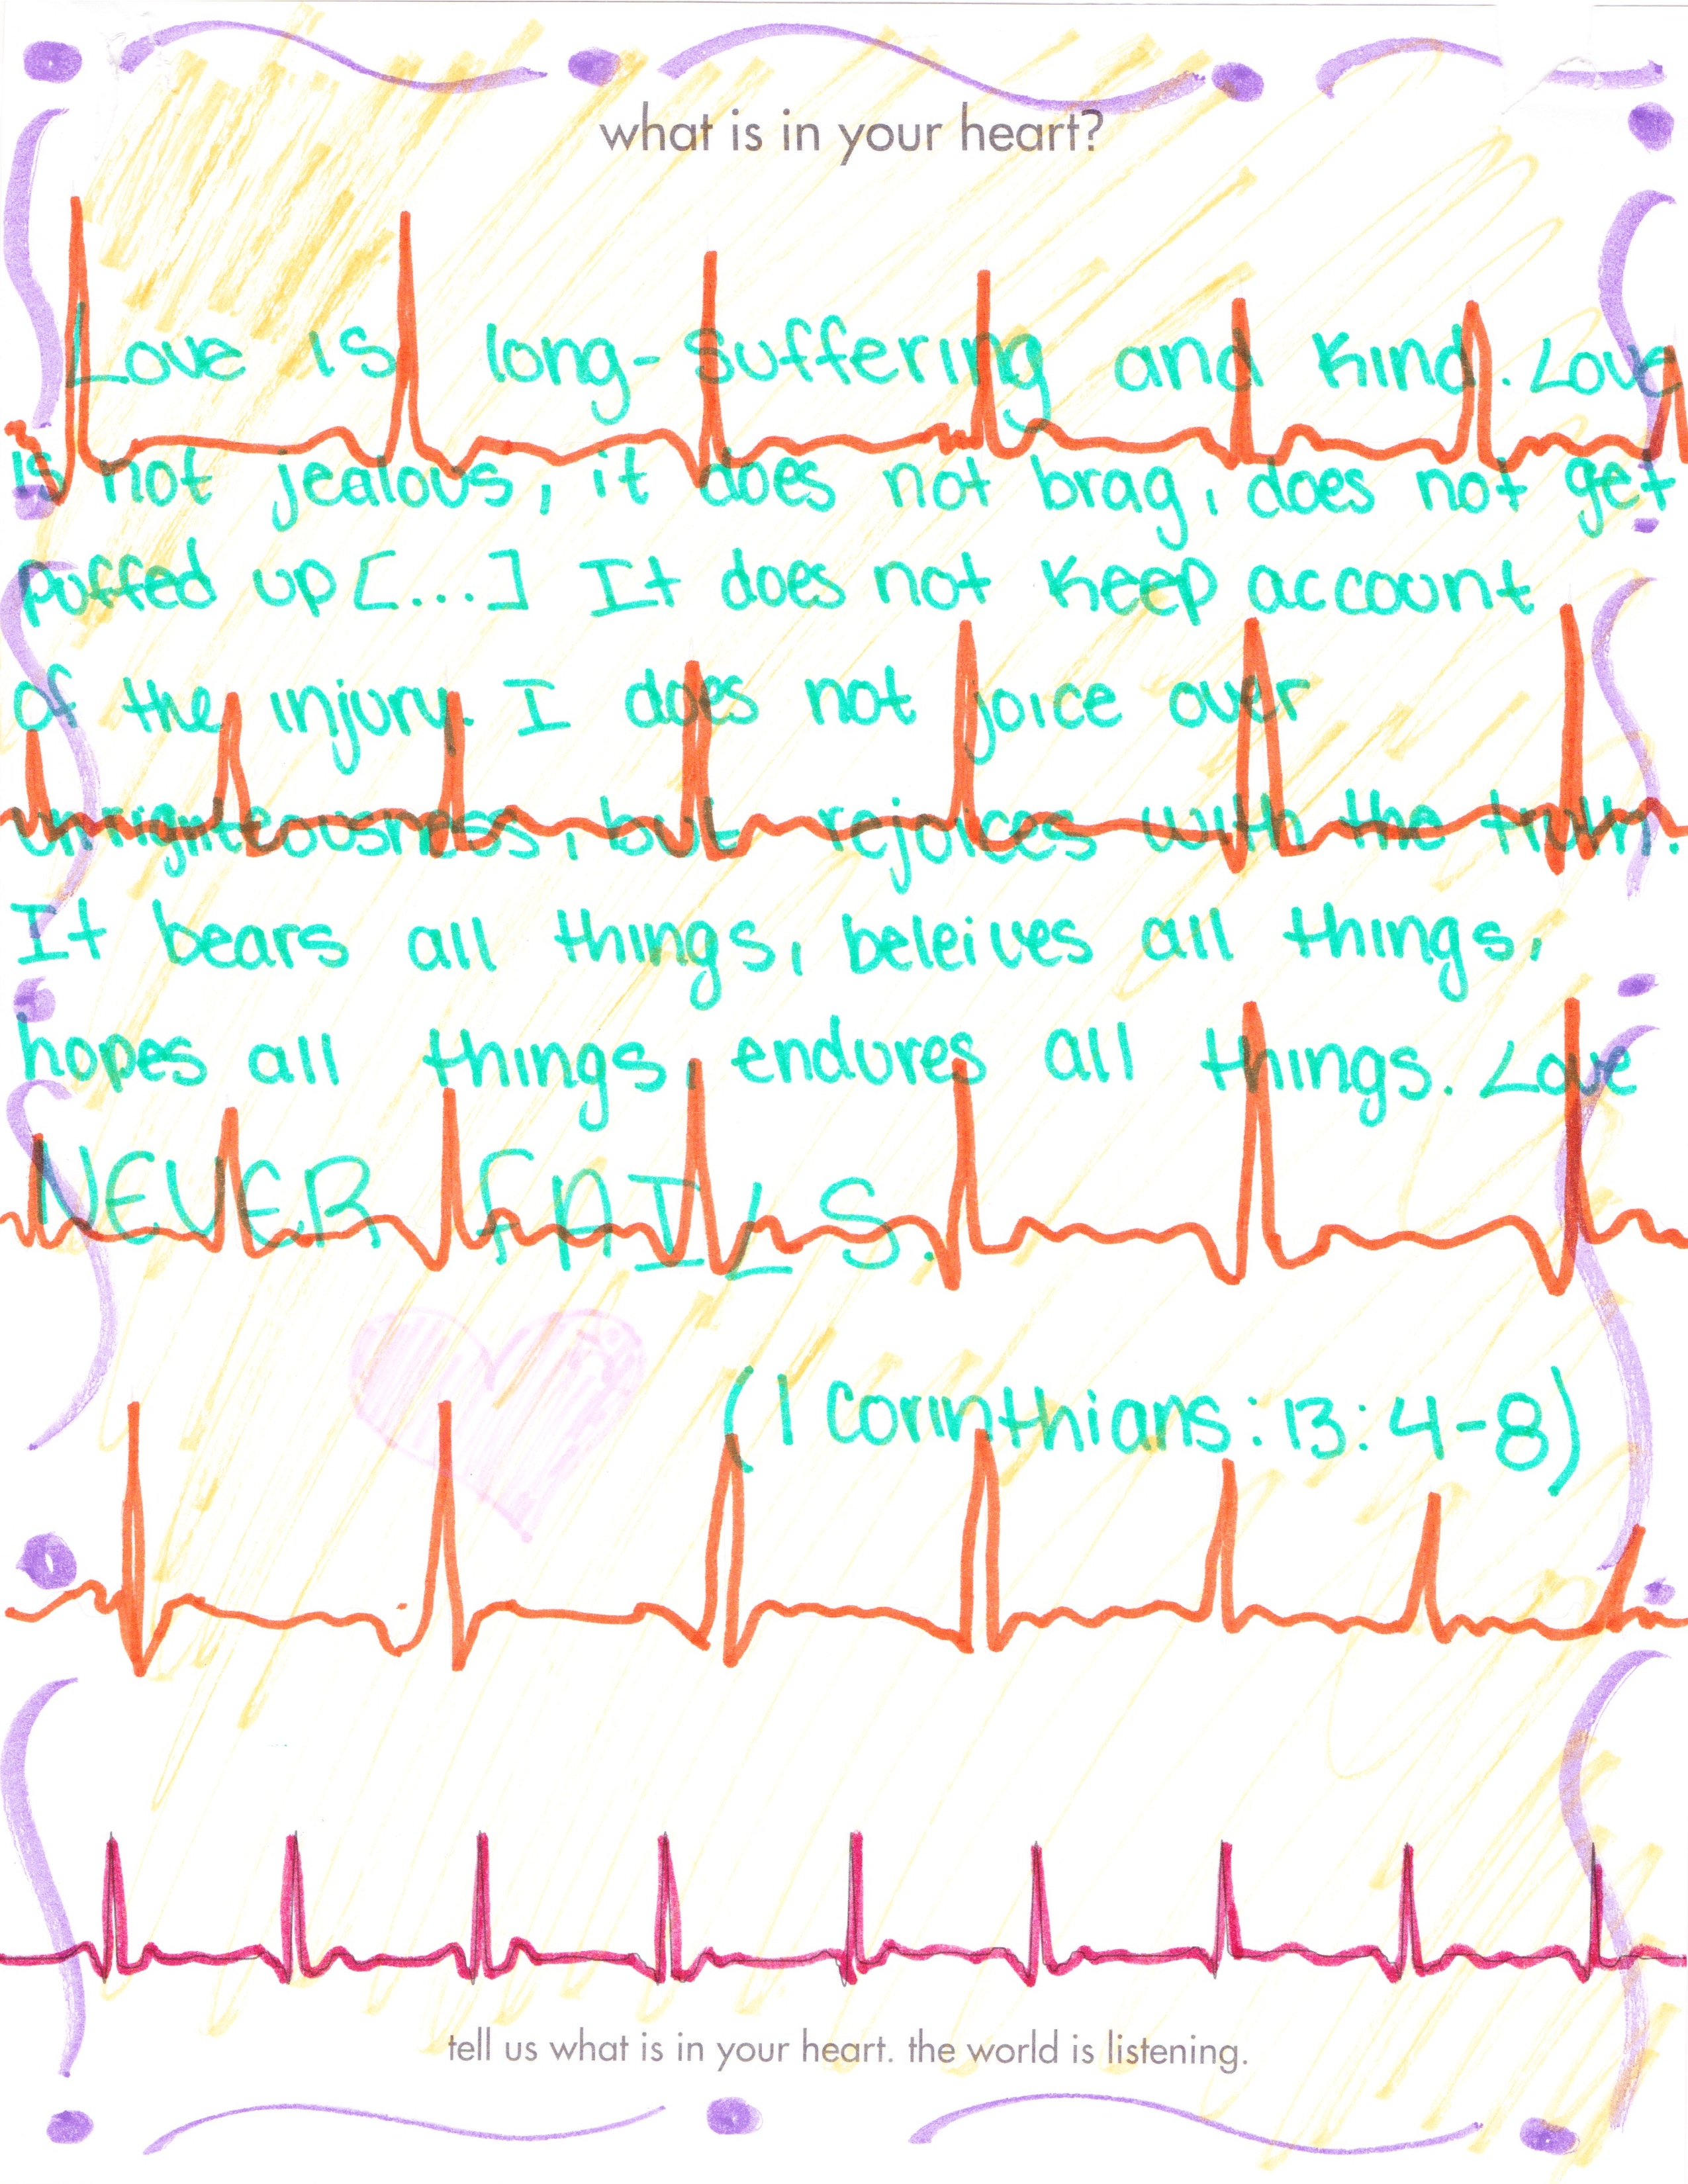 what is in your heart?
Love is long-suffering and kind. Love
is not jealous, it does not brag, does not get
puffed up [...] It does not keep account
of the injury. I does not joice over
unrighteousness, but rejoices with the truth.
It bears all things, beleives all things,
hopes all things, endures all things. Love
NEVER FAILS.
(1 Corinthians:13:4-8)
tell us what is in your heart. the world is listening.